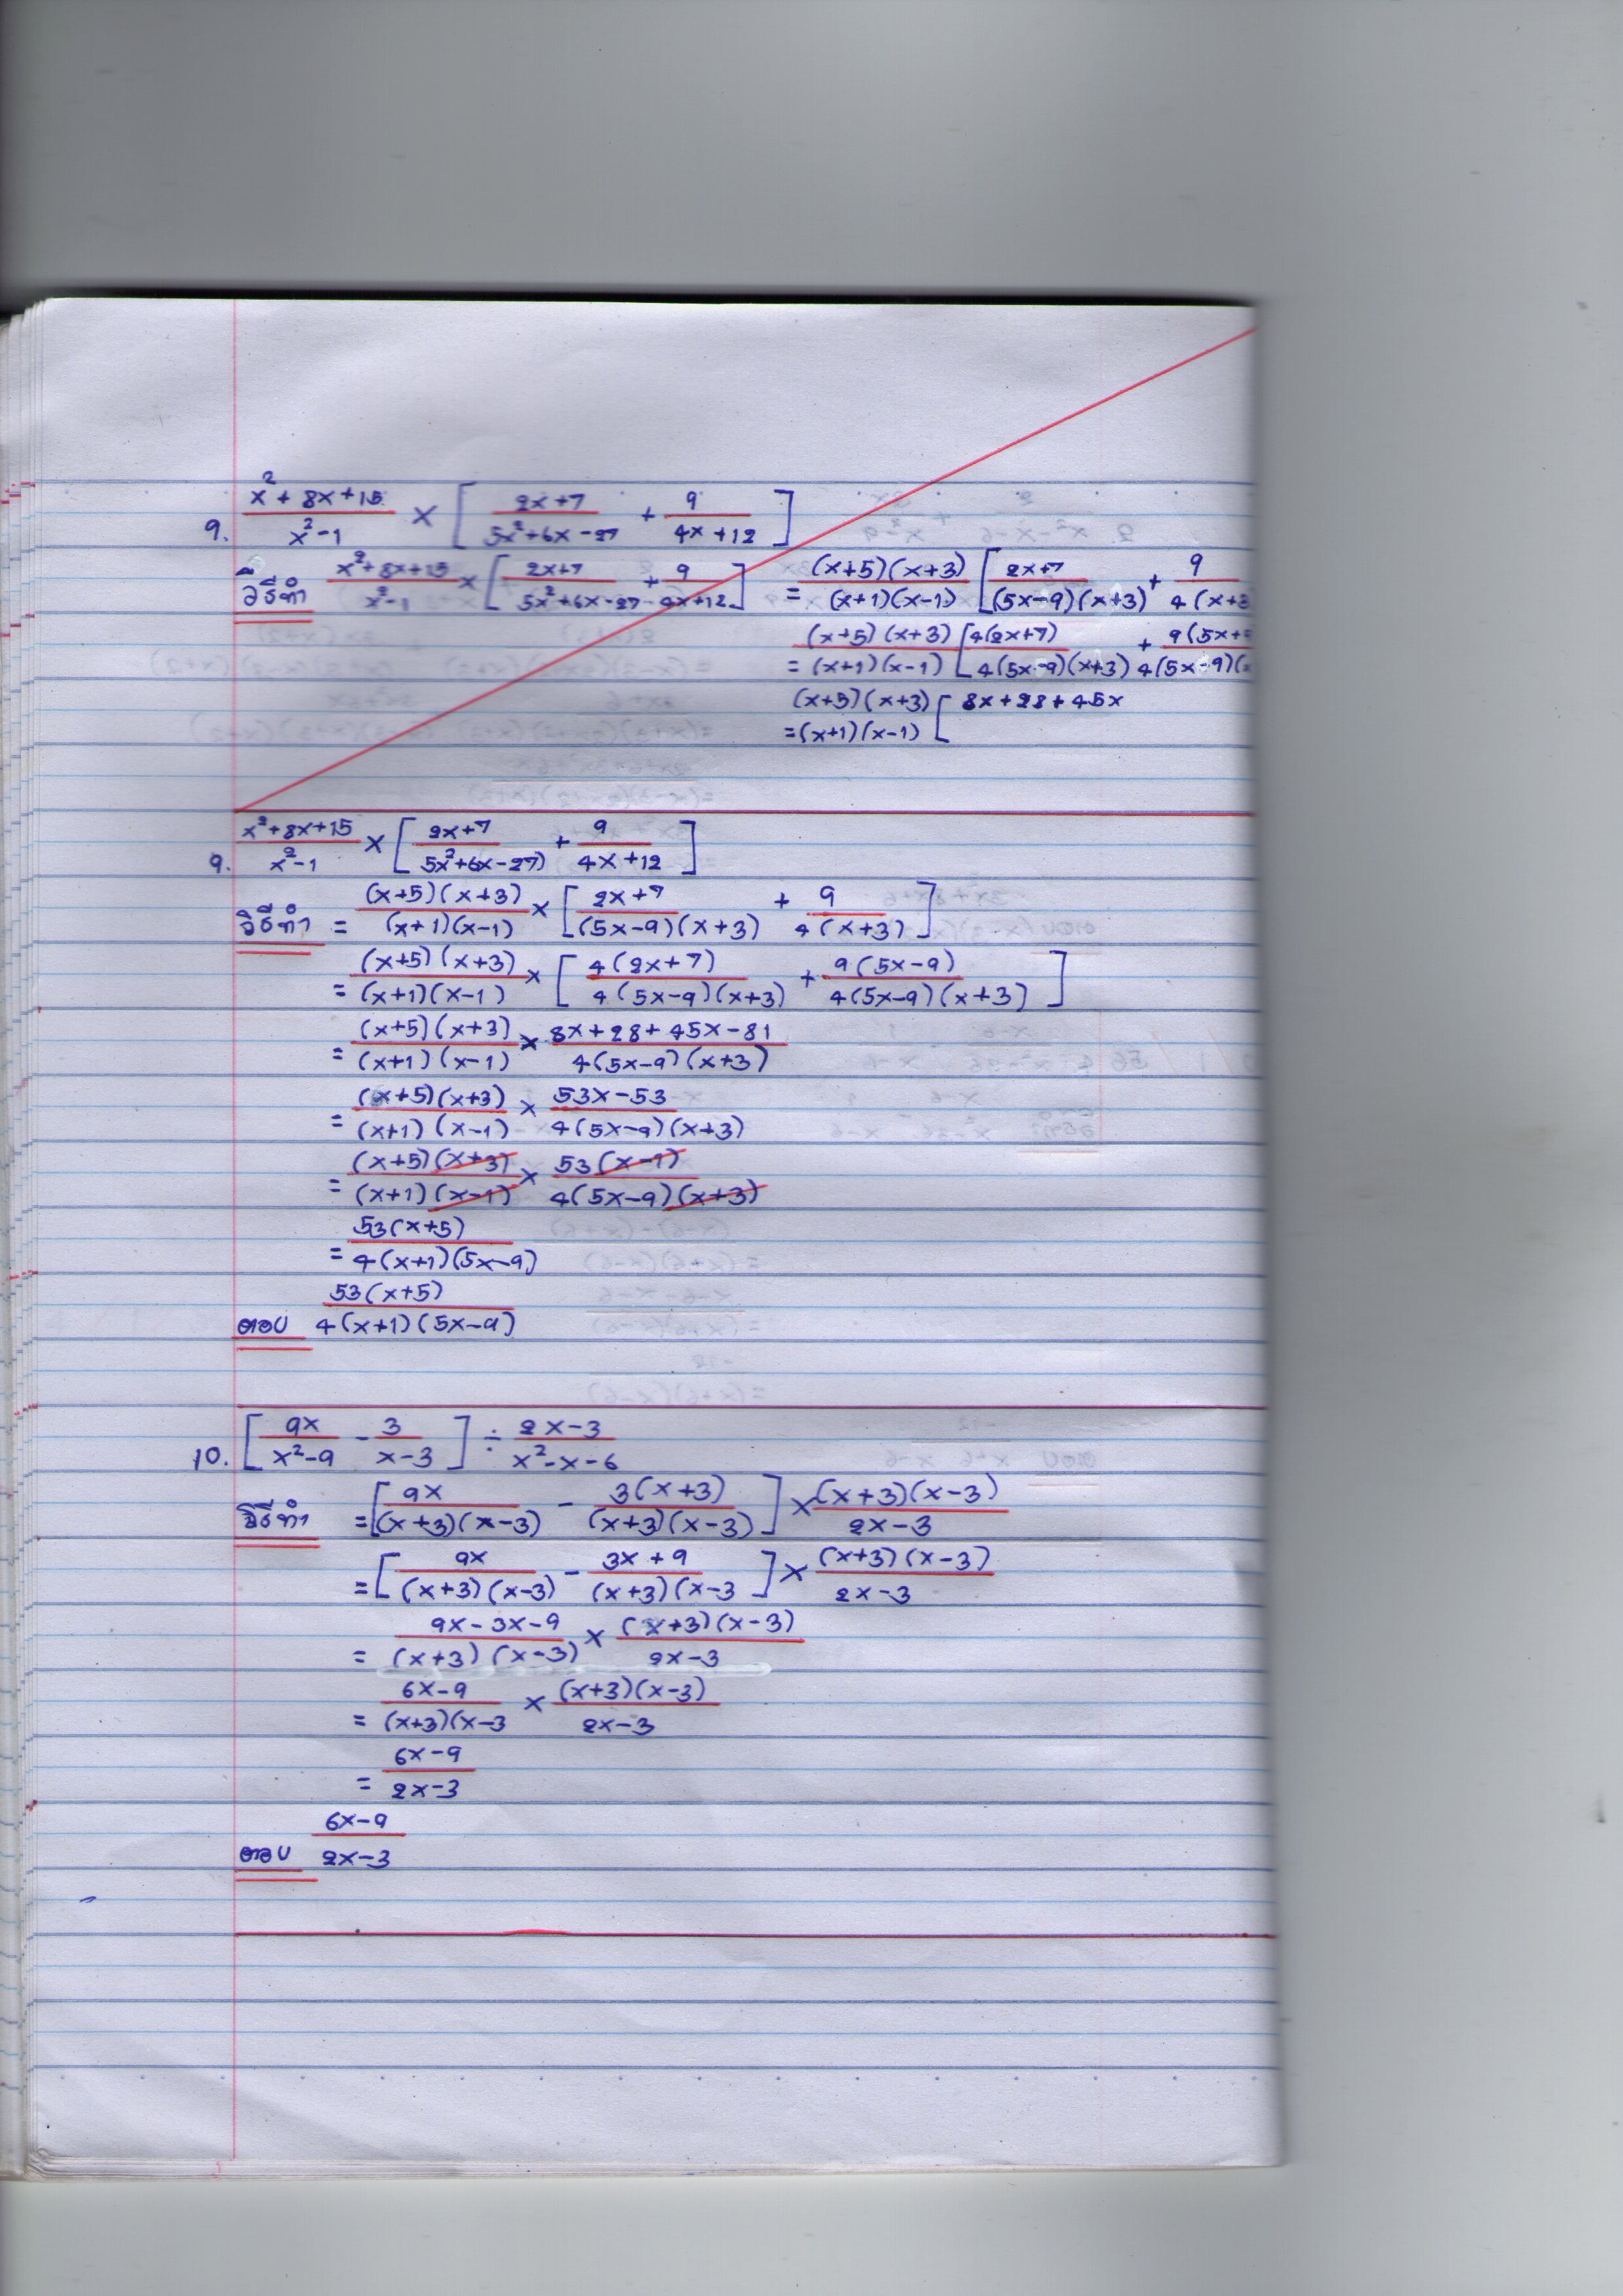 9. (x²+8x+15)/(x²-1) × [ (2x+7)/(5x²+6x-27) + 9/(4x+12) ]
วิธีทำ (x²+8x+15)/(x²-1) × [ (2x+7)/(5x²+6x-27) + 9/(4x+12) ]
= (x+5)(x+3)/(x+1)(x-1) [ (2x+7)/(5x-9)(x+3) + 9/4(x+3
= (x+5)(x+3)/(x+1)(x-1) [ 4(2x+7)/4(5x-9)(x+3) + 9(5x+/4(5x-9)(
= (x+5)(x+3)/(x+1)(x-1) [ 8x+28+45x
9. (x²+8x+15)/(x²-1) × [ (2x+7)/(5x²+6x-27) + 9/(4x+12) ]
วิธีทำ = (x+5)(x+3)/(x+1)(x-1) × [ (2x+7)/(5x-9)(x+3) + 9/4(x+3) ]
= (x+5)(x+3)/(x+1)(x-1) × [ 4(2x+7)/4(5x-9)(x+3) + 9(5x-9)/4(5x-9)(x+3) ]
= (x+5)(x+3)/(x+1)(x-1) × (8x+28+45x-81)/4(5x-9)(x+3)
= (x+5)(x+3)/(x+1)(x-1) × (53x-53)/4(5x-9)(x+3)
= (x+5)(x+3)/(x+1)(x-1) × 53(x-1)/4(5x-9)(x+3)
= 53(x+5)/4(x+1)(5x-9)
ตอบ 53(x+5)/4(x+1)(5x-9)
10. [ 9x/(x²-9) - 3/(x-3) ] ÷ (2x-3)/(x²-x-6)
วิธีทำ = [ 9x/(x+3)(x-3) - 3(x+3)/(x+3)(x-3) ] × (x+3)(x-3)/(2x-3)
= [ 9x/(x+3)(x-3) - (3x+9)/(x+3)(x-3 ] × (x+3)(x-3)/(2x-3)
= (9x-3x-9)/(x+3)(x-3) × (x+3)(x-3)/(2x-3)
= (6x-9)/(x+3)(x-3 × (x+3)(x-3)/(2x-3)
= (6x-9)/(2x-3)
ตอบ (6x-9)/(2x-3)